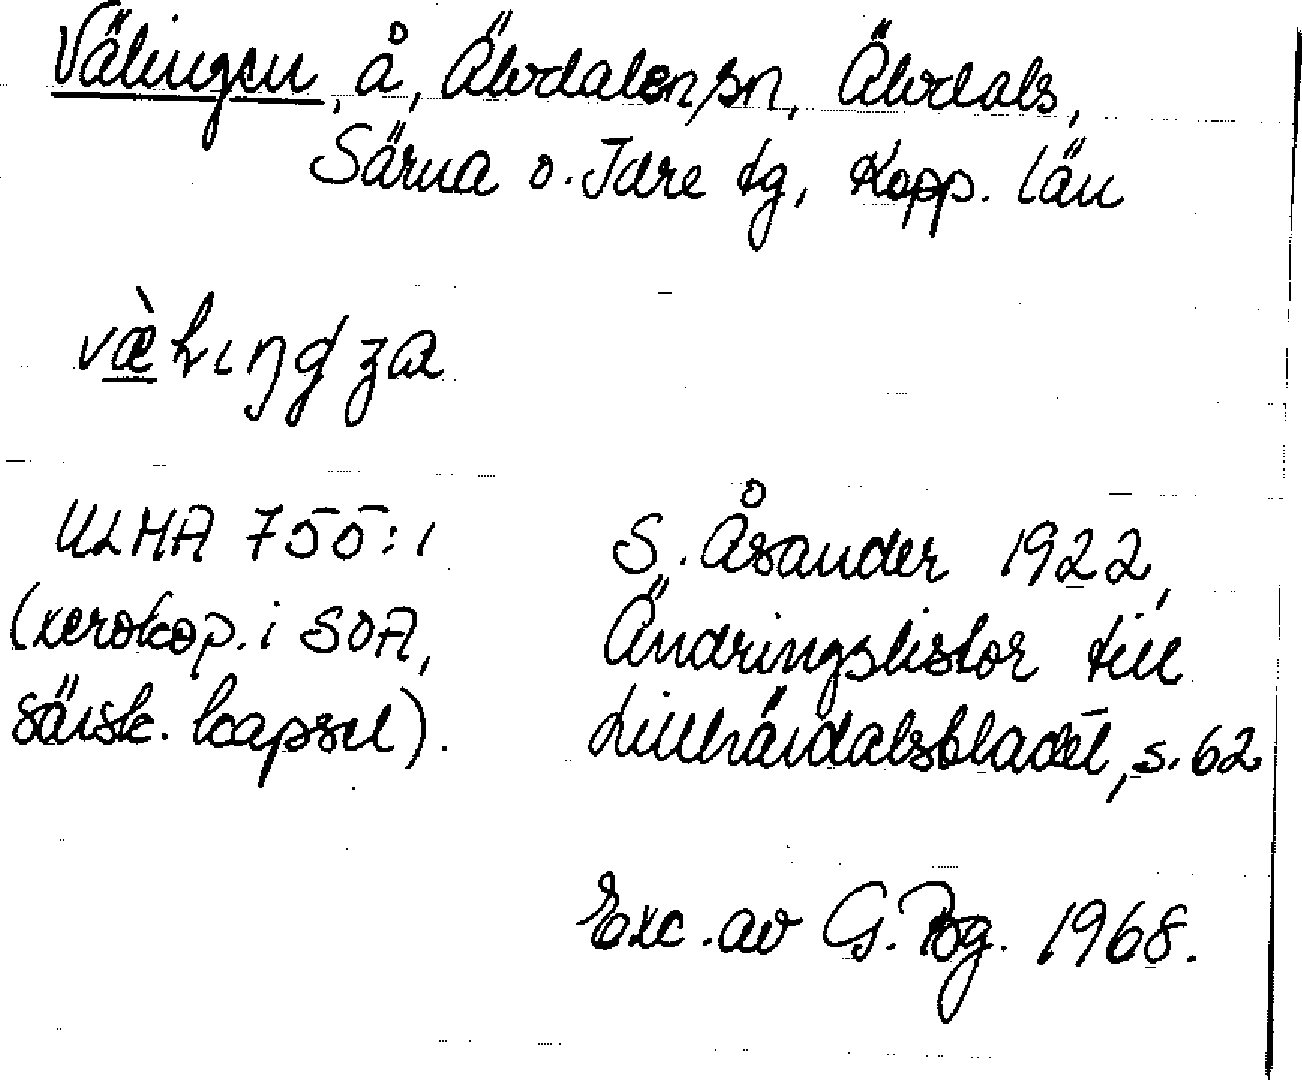 Välingen, å, Älvdalen sn, Älvdals,
Särna o. Idre tg, Kopp. län
ULMA 755:1
(xerokop. i SOA,
särsk. kapsel).
S. Åsander 1922,
Ändringslistor till
Lillhärdalsbladet, s. 62
Exc. av G. Bg. 1968.